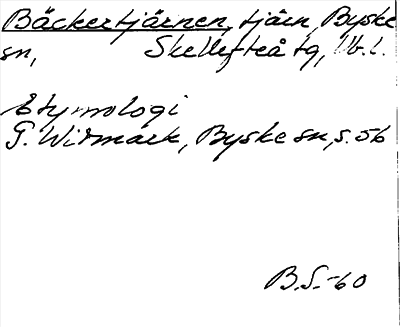 Bäckertjärnen, tjärn, Byske
sn, Skellefteå tg, Vb.l.
Etymologi
G. Widmark, Byske sn, s. 56
B.S.-60